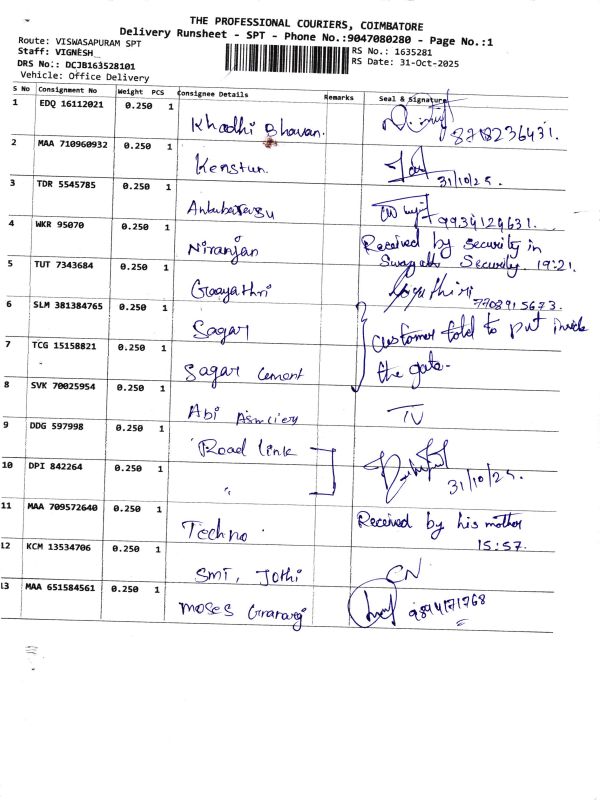 THE PROFESSIONAL COURIERS, COIMBATORE
Delivery Runsheet - SPT - Phone No.:9047080280 - Page No.:1
Route: VISWASAPURAM SPT
Staff: VIGNESH_
DRS No.: DCJB163528101
Vehicle: Office Delivery
RS No.: 1635281
RS Date: 31-Oct-2025
S No Consignment No Weight PCS Consignee Details Remarks Seal & Signature
1 EDQ 16112021 0.250 1 Khadhi Bhavan. 8718236431.
2 MAA 710960932 0.250 1 Kenstun. 31/10/25.
3 TDR 5545785 0.250 1 9934124631.
4 WKR 95070 0.250 1 Niranjan Received by security in
Security. 19:21.
5 TUT 7343684 0.250 1 Gaayathri 7708915673.
6 SLM 381384765 0.250 1 Sagar Customer told to put inside
7 TCG 15158821 0.250 1 Sagar Cement the gate-
8 SVK 70025954 0.250 1 Abi TV
9 DDG 597998 0.250 1 Road link
10 DPI 842264 0.250 1 " 31/10/25.
11 MAA 709572640 0.250 1 Techno. Received by his mother
15:57.
12 KCM 13534706 0.250 1 SMT, Jothi CN
13 MAA 651584561 0.250 1 Moses 9894171768